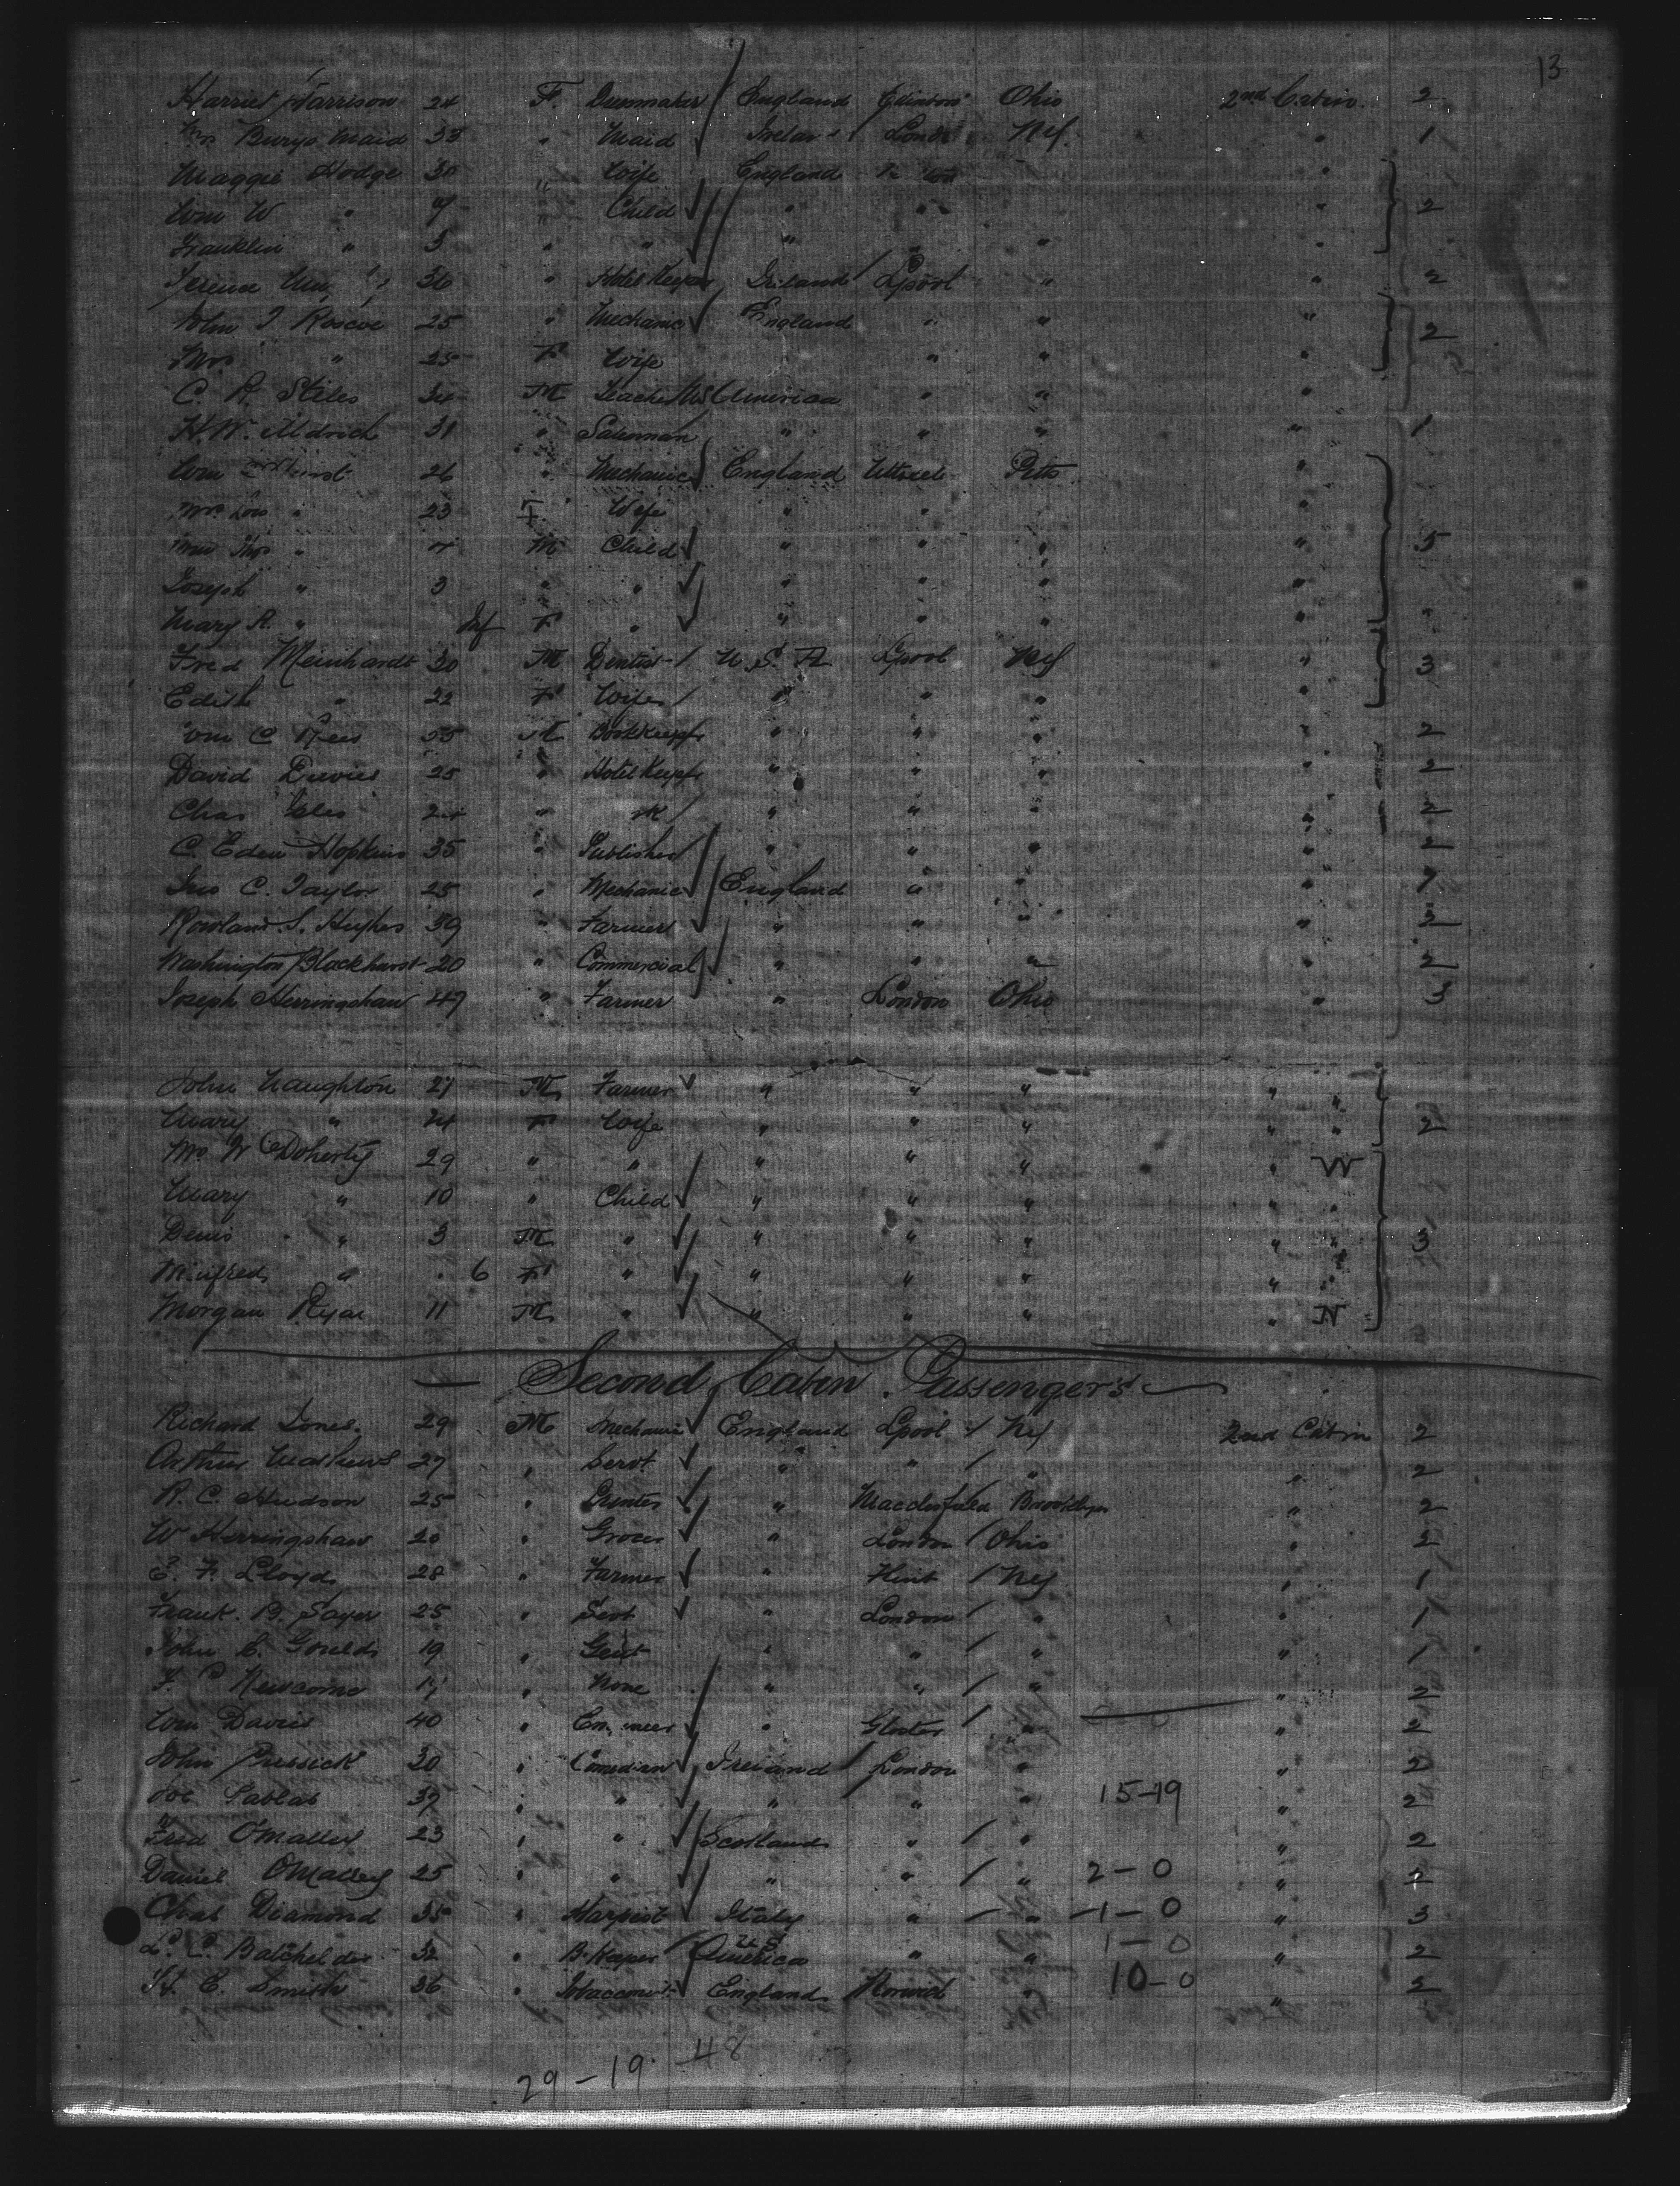 13
Harriet Harrison 24 F. Dressmaker England Ohio 2nd Cabin. 2
Mrs Burys Maid 33 " Maid London NY. " 1
Maggie Hodge 30 " Wife England "
Wm W " 7 " Child " " " 2
Franklin " 3 " " " " " "
36 " Hotel Keeper Ireland Lpool " " 2
John J Roscoe 25 " Mechanic England " " " 2
Mrs " 25 F Wife " " "
C. R. Stiles 34 M Teacher US America " " "
H. W. Aldrich 31 " Salesman " " " " 1
Wm 26 " Mechanic England Pitts "
Mrs " 23 F. Wife " " "
" M Child " " " " 5
Joseph " 3 " " " " " "
Mary A. " Inf F " " " " "
Fred Meinhardt 30 M Dentist U. S. A Lpool NY " 3
Edith " 22 F Wife " " " "
Wm C Rees 35 M Bookkeeper " " " " 2
David Davies 25 " Hotel Keeper " " " " 2
Chas 24 " " " " " 2
C. Eden Hopkins 35 " Publisher " " " " 2
Jno C. Taylor 25 " Mechanic England " " "
Rowland S. Hughes 39 " Farmer " " " " 2
Washington Blackhurst 20 " Commercial " " " " 2
Joseph Herringshaw 47 " Farmer " London Ohio " 3
John Naughton 27 M Farmer " " " " "
Mary " 24 F Wife " " " " " 2
Mrs W Doherty 29 " " " " " " W
Mary " 10 " Child " " " " "
Denis " 3 M " " " " " " 3
Winifred " 6 F " " " " " "
Morgan Ryan 11 M " " " " " N
Second Cabin Passengers
Richard Jones. 29 M Mechanic England Lpool NY 2nd Cabin 2
Arthur Mathews 27 " Servt " " " " 2
R. C. Hudson 25 " Printer " Macclesfield Brooklyn " 2
W Herringshaw 20 " Grocer " London Ohio " 2
E. F. Lloyd 28 " Farmer " NY " 1
Frank. B. Sayer 25 " Servt " London " " 1
John C. Goulds 19 " Gent " " " " 1
F. C Newcome 17 " None " " " " 2
Wm Davies 40 " Engineer " Gloster " " 2
John Pressick 30 " Comedian Ireland London " " 2
37 " " " " " 15-19 " 2
Fred O'Malley 23 " " Scotland " " " 2
Daniel O'Malley 25 " " " " " 2-0 " 2
Chas Diamond 35 " Harpist Italy " " 1-0 " 3
L. C. Batchelder 32 " B. Keeper US America " " 1-0 " 2
H. C. Smith 36 " Tobacconist England Norwich " 10-0 " 2
29-19 48